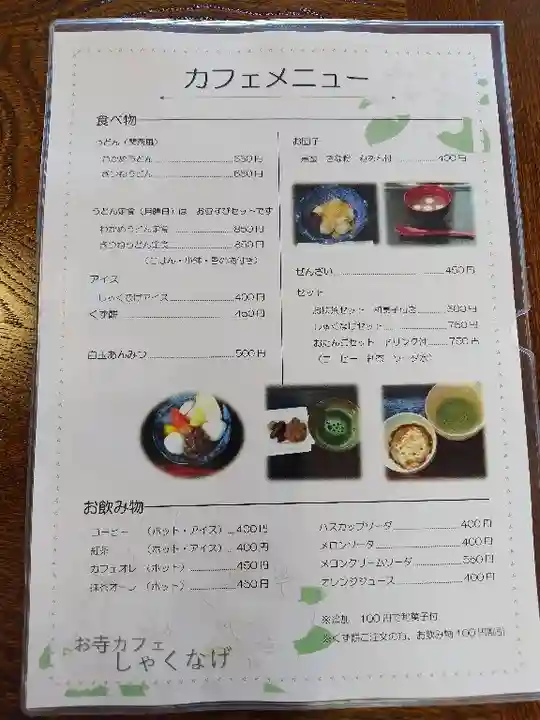 カフェメニュー
食べ物
うどん（関西風）
わかめうどん 650円
きつねうどん 650円
うどん定食（月曜日）は おむすびセットです
わかめうどん定食 850円
きつねうどん定食 850円
（ごはん・小鉢・香の物付き）
アイス
しゃくなげアイス 400円
くず餅 450円
白玉あんみつ 500円
お団子
きなこ 400円
ぜんざい 450円
セット
お抹茶セット 和菓子付き 600円
しゃくなげセット 750円
おだんごセット ドリンク付 750円
（コーヒー 紅茶 ソーダ水）
お飲み物
コーヒー （ホット・アイス） 400円
紅茶 （ホット・アイス） 400円
カフェオレ （ホット） 450円
抹茶オーレ （ホット） 450円
ハスカップソーダ 400円
メロンソーダ 400円
メロンクリームソーダ 550円
オレンジジュース 400円
※追加 100円で和菓子付
※くず餅ご注文の方、お飲み物100円割引
お寺カフェ
しゃくなげ